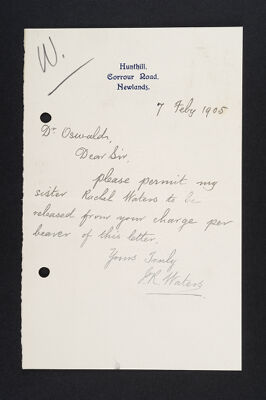 W.
Hunthill,
Corrour Road,
Newlands.
7 Feby 1905
Dr Oswald,
Dear Sir,
please permit my
sister Rachel Waters to be
released from your charge per
bearer of this letter.
Yours Truly
J.R. Waters.